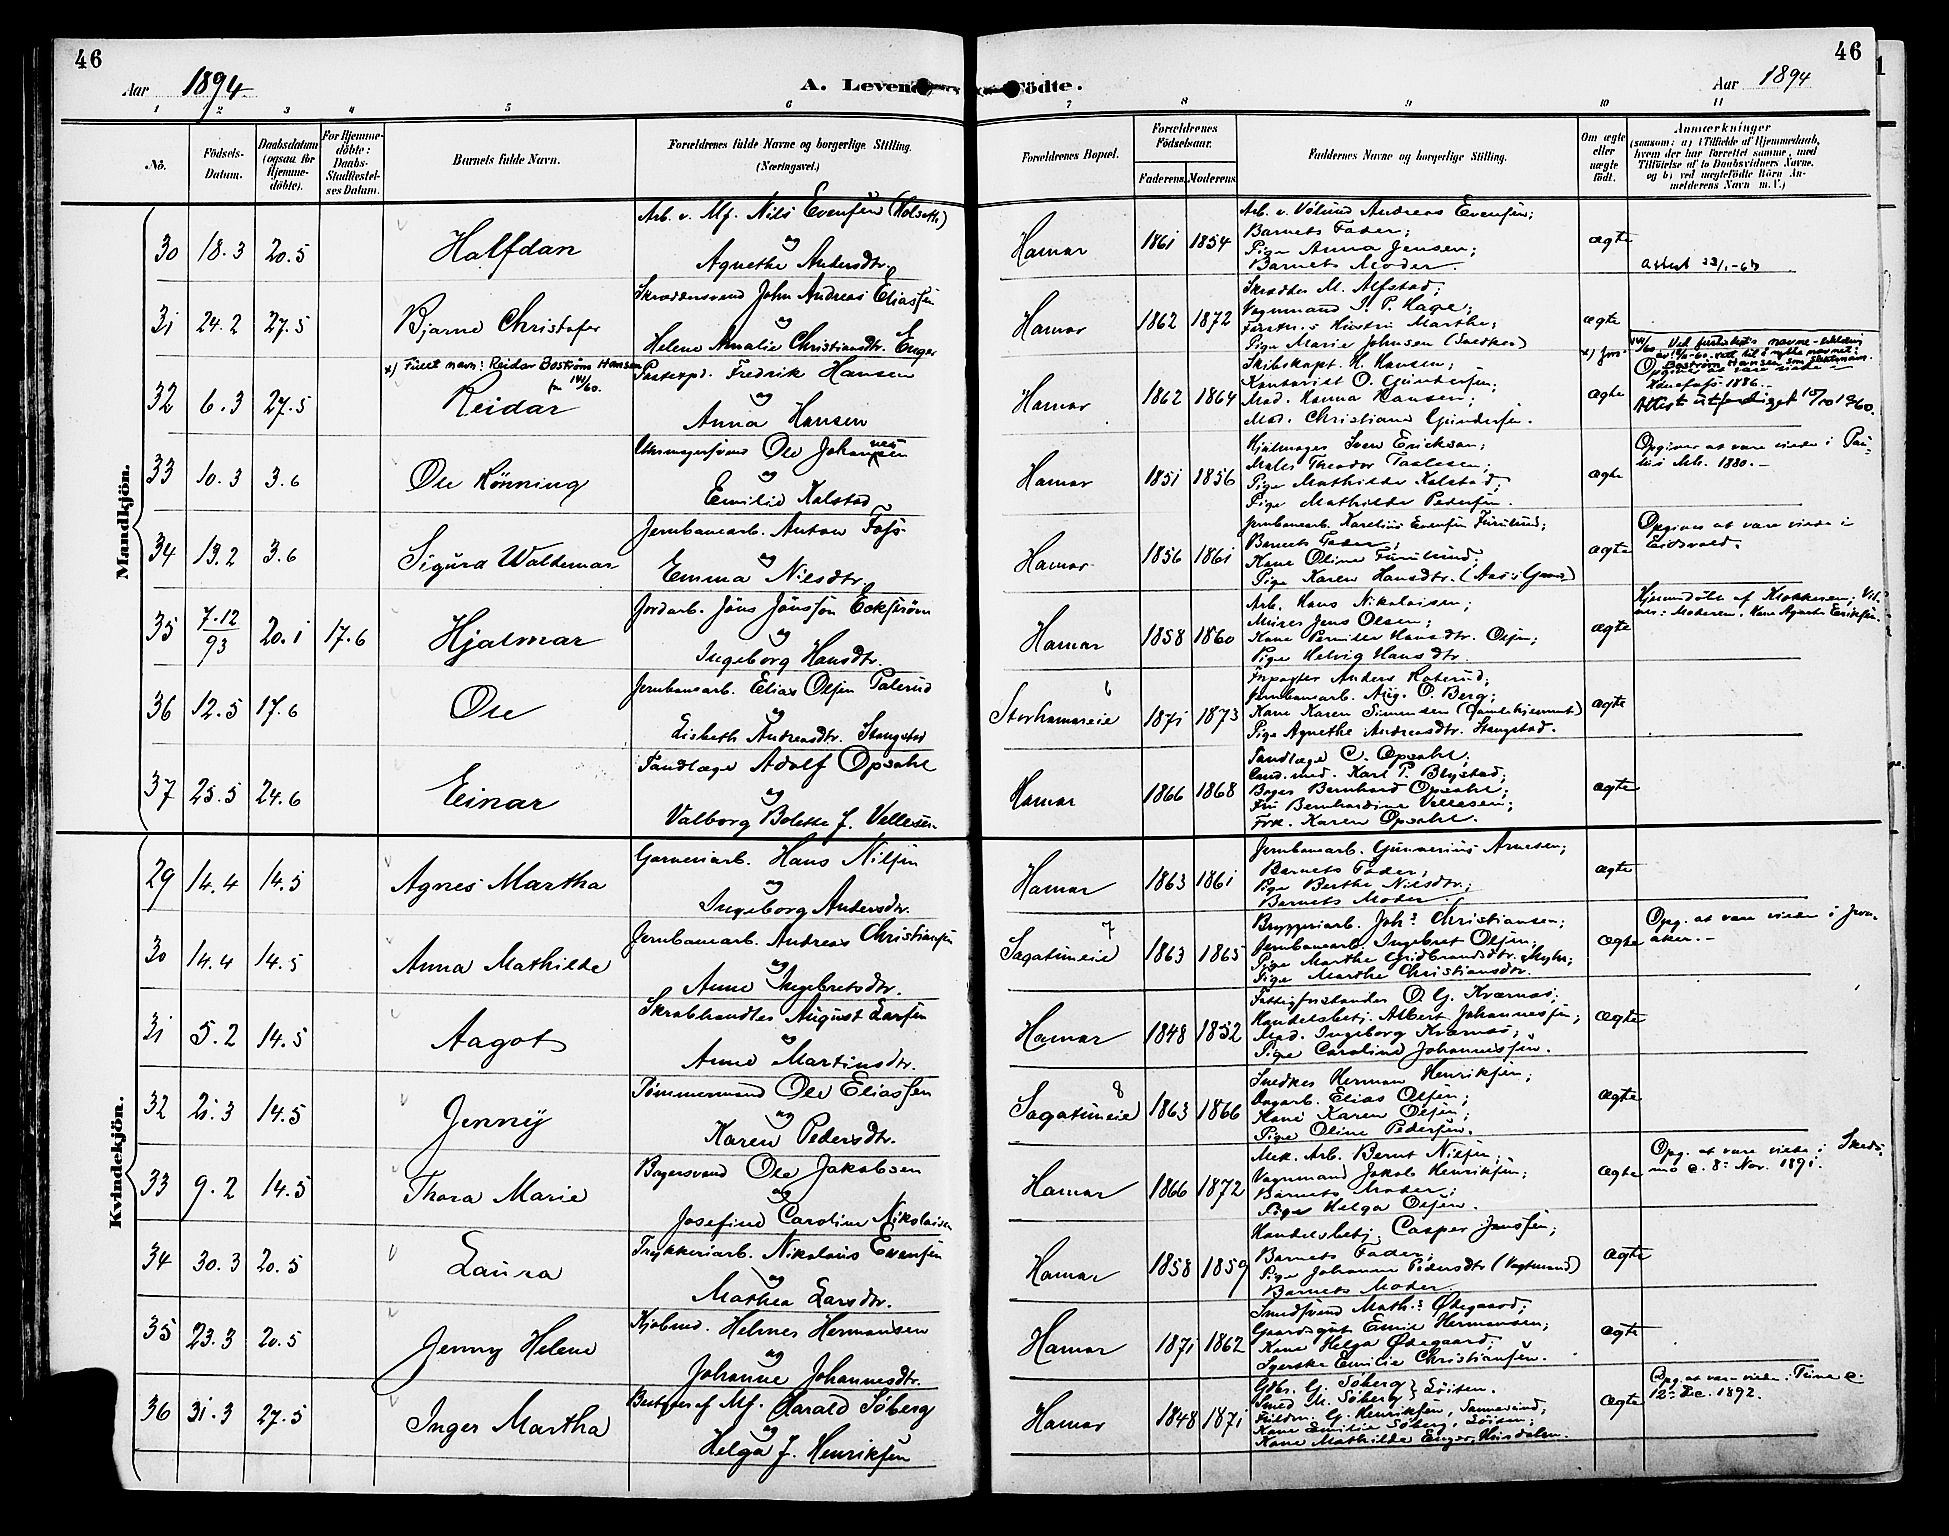 46
Aar 1894.
A. Levende Födte.
46
Aar 1894
1 2 3 4 5 6 7 8 9 10 11
No.
Födsels-Datum.
Daabsdatum (ogsaa for Hjemme-döbte).
For Hjemme-döbte: Daabs-Stadfæstel-ses Datum.
Barnets fulde Navn.
Forældrenes fulde Navne og borgerlige Stilling. (Næringsvei.)
Forældrenes Bopæl.
Forældrenes Födselsaar.
Faderens. Moderens.
Faddernes Navne og borgerlige Stilling.
Om ægte eller uægte födt.
Anmærkninger
(saasom: a) i Tilfælde af Hjemmedaab, hvem der har forrettet samme, med Tilföielse af to Daabsvidners Navne, og b) ved uægtefödte Börn Anmelderens Navn m. V.)
Mandkjön.
30 18.3 20.5 Halfdan
Arb. v. Mf. Nils Evensen (Holseth)
og
Agnethe Andersdtr.
Hamar 1861 1854
Arb. v. Vølund Andreas Evensen;
Barnets Fader;
Pige Anna Jensen;
Barnets Moder.
ægte
Attest 23/1-67
31 24.2 27.5 Bjarne Christofer
Skræddersvend John Andreas Eliassen
og
Helene Amalie Christiansdtr. Enger
Hamar 1862 1872
Skrædder M. Alfstad;
Vognmand J. P. Hage;
Pige Marie Johnsen (Snedker)
ægte
x) Füllt navn: Reidar Boström Hansen
32 6.3 27.5 Reidar
Postexpd. Fredrik Hansen
og
Anna Hansen
Hamar 1862 1864
Skibskapt. H. Hansen;
Kontorist O. Gundersen;
Mad. Hanna Hansen;
Mad. Christiane Gundersen.
ægte
Attest utferdiget 15/10 1960.
33 10.3 3.6 Ole Rönning
Uhrmagersvend Ole Johannessen
og
Emilie Kalstad
Hamar 1851 1856
Hjulmager Sven Erickson;
Maler Theodor Taalesen;
Pige Mathilde Kalstad;
Pige Mathilde Pedersen.
ægte
Opgiver at være viede i Pau-
lus Mh. 1880.-
34 13.2 3.6 Sigurd Waldemar
Jernbanearb. Anton Foss
og
Emma Nilsdtr.
Hamar 1856 1861
Jernbanearb. Karelius Evensen Furulund;
Barnets Fader;
Kone Oline Furulund;
Pige Karen Hansdtr. (Aas's Gaard)
ægte
Opgiver at være viede i
Eidsvold.
35 7.12/93 20.1 17.6 Hjalmar
Jordarb. Jöns Jönsson Eckström
og
Ingeborg Hansdtr.
Hamar 1858 1860
Arb. Hans Nikolaisen;
Murer Jens Olsen;
Kone Pernille Hansdtr. Olsen;
Pige Helvig Hansdtr.
ægte
Hjemmedöbt af Klokkeren; Vid-
ner: Moderen, Kone Agaete Eriksen.
36 12.5 17.6 Ole
Jernbanearb. Elias Olsen Palerud
og
Lisbeth Andreasdtr. Stangstad
Storhamareie 6 1871 1873
Anders Koterud;
Jernbanearb. Aug. O. Berg;
Kone Karen Simensen (Gamlehjemmet)
Pige Agnethe Andreasdtr. Stangstad.
ægte
37 25.5 24.6 Einar
Tandlæge Adolf Opsahl
og
Valborg Bolette J. Vellesen
Hamar 1866 1868
Tandlæge C. Opsahl;
Cand. med. Karl P. Blystad;
Bager Bernhard Opsahl;
Fru Bernhardine Vellesen;
Frk. Karen Opsahl.
ægte
Kvindekjön.
29 14.4 14.5 Agnes Martha
Garveriarb. Hans Nilsen
og
Ingeborg Andersdtr.
Hamar 1863 1861
Jernbanearb. Gunnerius Arnesen;
Barnets Fader;
Pige Berthe Nilsdtr.;
Barnets Moder.
ægte
30 14.4 14.5 Anna Mathilde
Jernbanearb. Andreas Christiansen
og
Anne Ingebretsdtr.
Sagatuneie 7 1863 1865
Bryggeriarb. Johs Christiansen;
Jernbanearb. Ingebret Olsen;
Pige Marthe Gudbrandsdtr. Myhr;
Pige Marthe Christiansdtr.
ægte
Opg. at være viede i Gran-
aker.-
31 5.2 14.5 Aagot
Skrabhandler August Larsen
og
Anne Martinsdtr.
Hamar 1848 1852
Fattigforstander O. G. Kværnaas;
Handelsbetj. Albert Johannessen;
Mad. Ingeborg Kværnaas;
Pige Caroline Johannessen.
ægte
32 21.3 14.5 Jenny
Tömmermand Ole Eliassen
og
Karen Pedersdtr.
Sagatuneie 8 1863 1866
Snedker Herman Henriksen;
Elias Olsen;
Kone Karen Olsen;
Pige Oline Pedersen.
ægte
33 9.2 14.5 Thora Marie
Bagersvend Ole Jakobsen
og
Josefine Caroline Nikolaisen
Hamar 1866 1872
Mek. Arb. Bernt Nilsen;
Vognmand Jakob Henriksen;
Barnets Moder;
Pige Helga Olsen.
ægte
Opg. at være viede i Skeds-
mo e. 8de Nov. 1891.
34 30.3 20.5 Laura
Trykkeriarb. Nikolaus Evensen
og
Mathea Larsdtr.
Hamar 1858 1859
Handelsbetj. Casper Jenssen;
Barnets Fader;
Pige Johanne Pedersdtr (Vogtmand)
Barnets Moder
ægte
35 23.3 20.5 Jenny Helene
Kjøbmd. Helmer Hermansen
og
Johanne Johannesdtr.
Hamar 1871 1862
Smedsvend Maths Ødegaard;
Gaardsgut Emil Hermansen;
Kone Helga Ødegaard;
Syerske Emilie Christiansen.
ægte
36 31.3 27.5 Inger Martha
Bestyrer af Mf. Harald Söberg
og
Helga J. Henriksen
Hamar 1848 1871
Gdbr. G. Söberg } Löiten.
Smed M. Söberg }
G. Henriksen,
Kone Emilie Söberg, Löiten;
Kone Mathilde Enger,
ægte
Opg. at være viede i Tune e.
12te Dec. 1892.